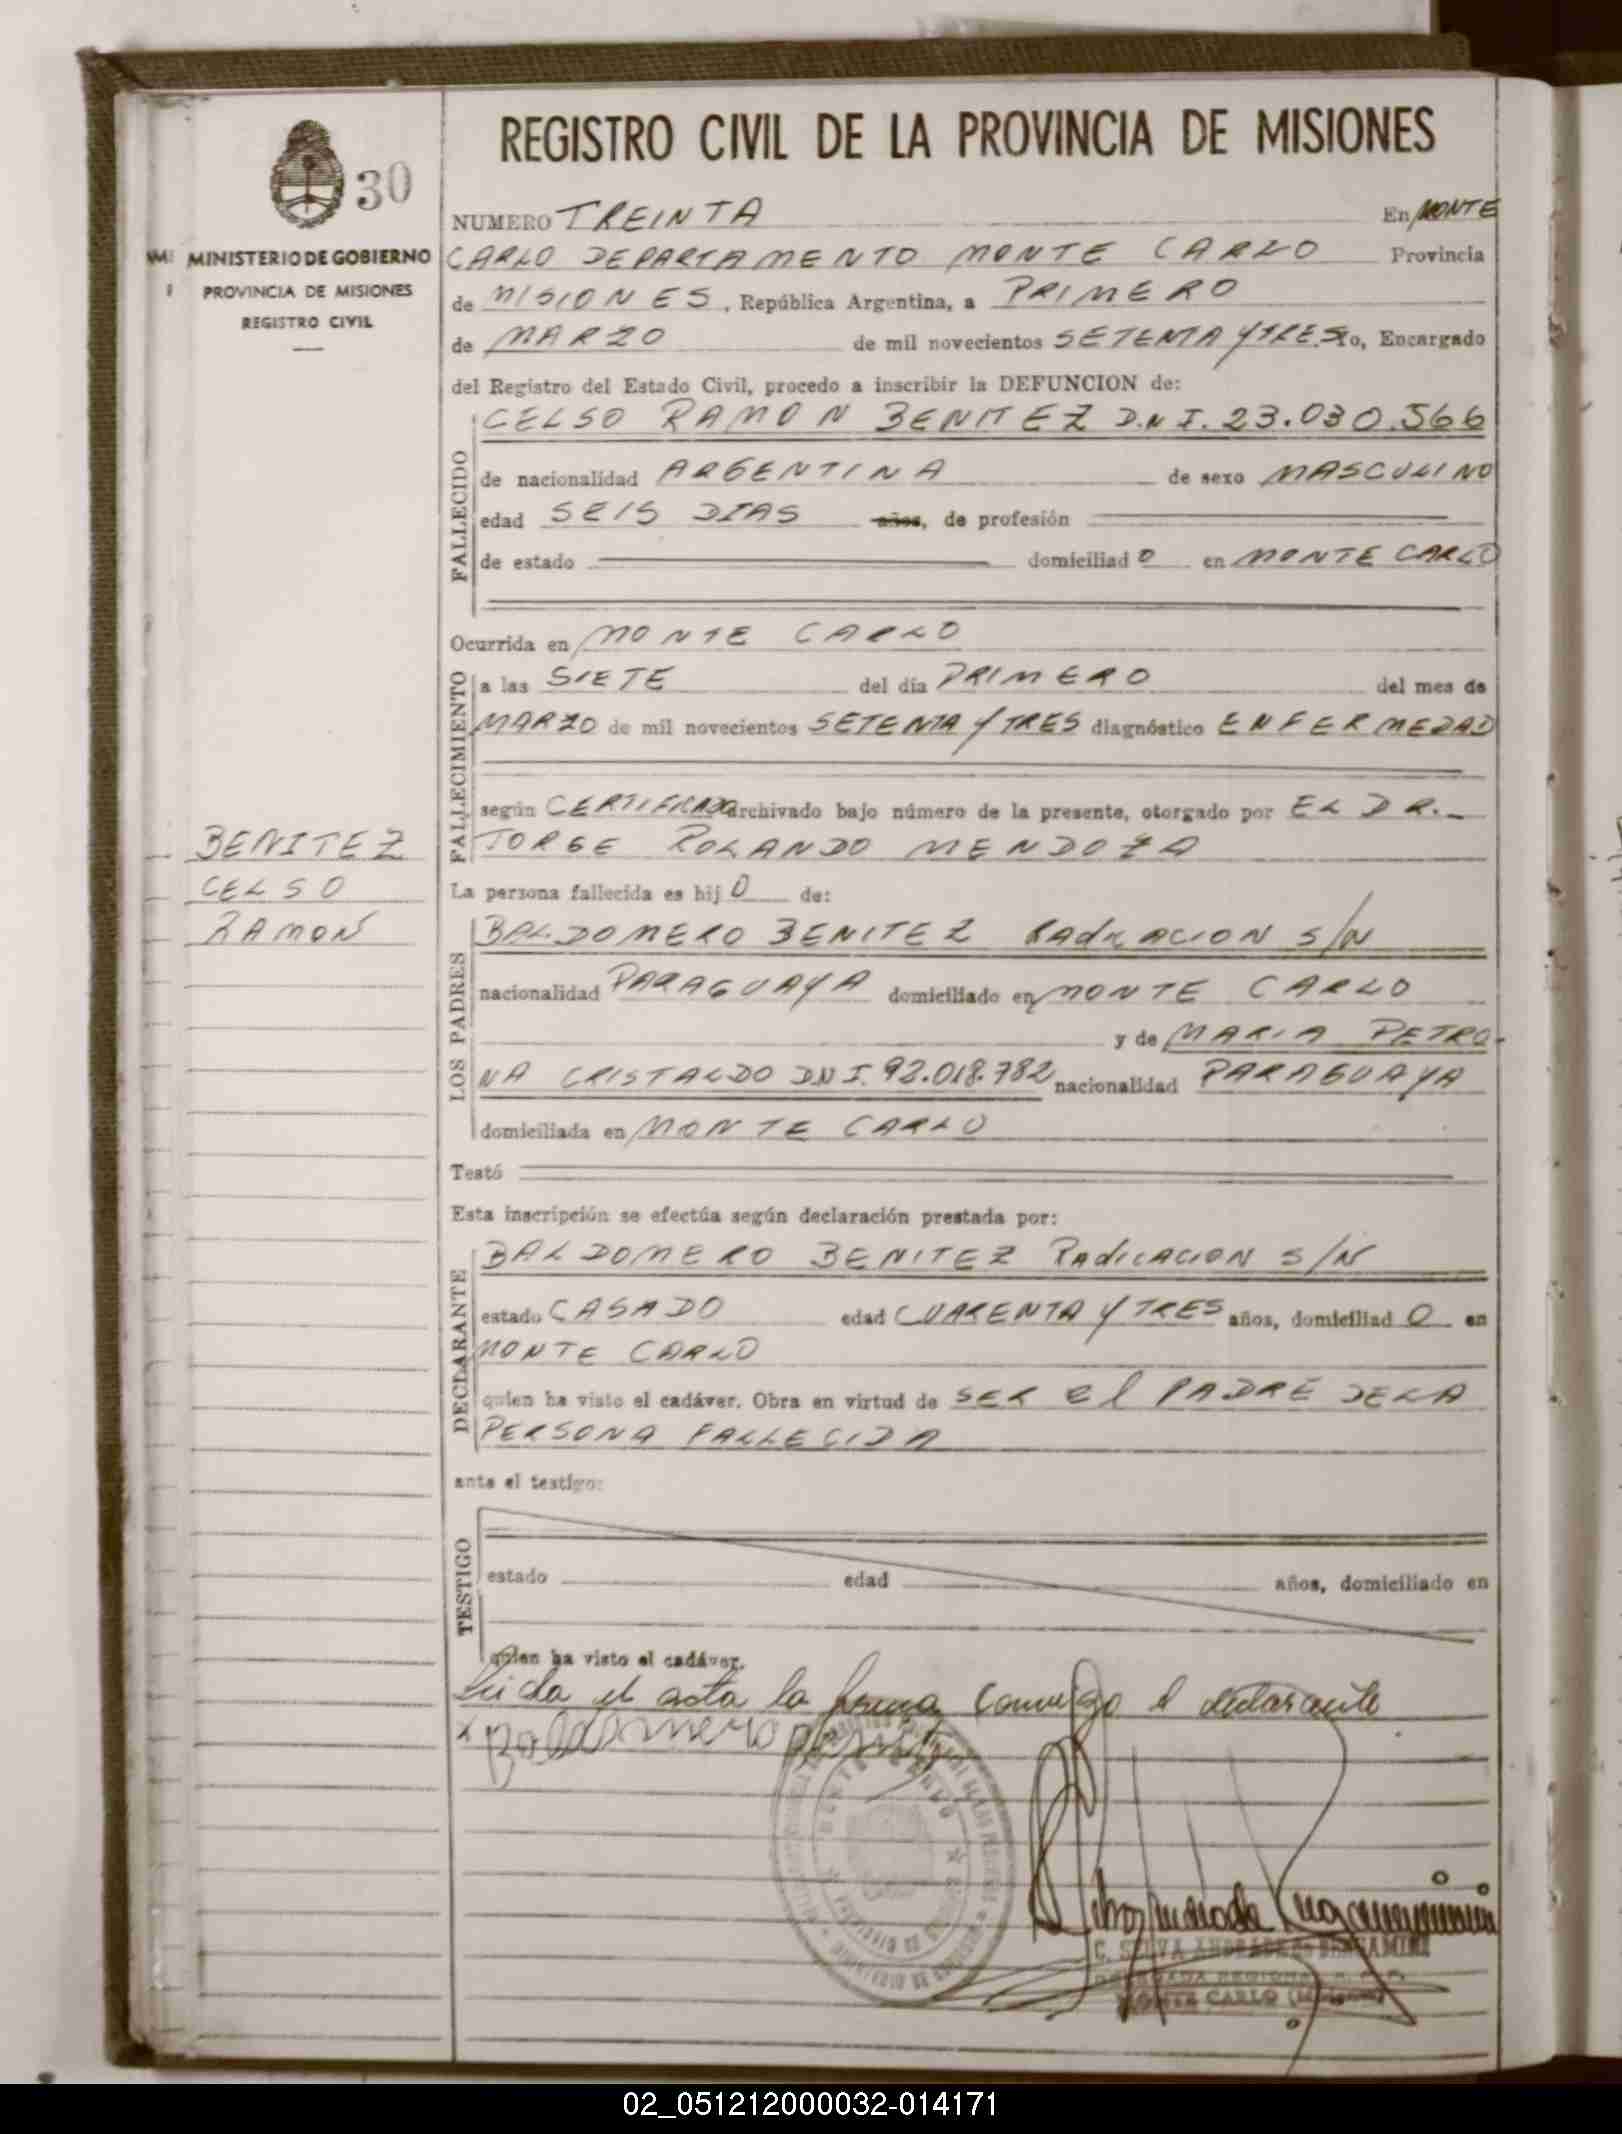 REGISTRO CIVIL DE LA PROVINCIA DE MISIONES
30
MINISTERIO DE GOBIERNO
PROVINCIA DE MISIONES
REGISTRO CIVIL
NUMERO TREINTA En MONTE
CARLO DEPARTAMENTO MONTE CARLO Provincia
de MISIONES, República Argentina, a PRIMERO
de MARZO de mil novecientos SETENTA Y TRES Yo, Encargado
del Registro del Estado Civil, procedo a inscribir la DEFUNCION de:
CELSO RAMON BENITEZ D.N I. 23.030.566
FALLECIDO
de nacionalidad ARGENTINA de sexo MASCULINO
edad SEIS DIAS años, de profesión
de estado domiciliad O en MONTE CARLO
Ocurrida en MONTE CARLO
FALLECIMIENTO
a las SIETE del día PRIMERO del mes de
MARZO de mil novecientos SETENTA Y TRES diagnóstico ENFERMEDAD
según CERTIFICADO archivado bajo número de la presente, otorgado por EL DR.-
JORGE ROLANDO MENDOZA
BENITEZ
CELSO
RAMON
La persona fallecida es hij O de:
LOS PADRES
BALDOMERO BENITEZ RADICACION S/N
nacionalidad PARAGUAYA domiciliado en MONTE CARLO
y de MARIA PETRO-
NA CRISTALDO DNI. 92.018.782 nacionalidad PARAGUAYA
domiciliada en MONTE CARLO
Testó
Esta inscripción se efectúa según declaración prestada por:
DECLARANTE
BALDOMERO BENITEZ RADICACION S/N
estado CASADO edad CUARENTA Y TRES años, domiciliad O en
MONTE CARLO
quien ha visto el cadáver. Obra en virtud de SER el PADRE DE LA
PERSONA FALLECIDA
ante el testigo:
TESTIGO
estado edad años, domiciliado en
quien ha visto el cadáver.
Leida el acta la firma conmigo el declarante
x Baldomero Benitez
MONTE CARLO (Misiones)
02_051212000032-014171